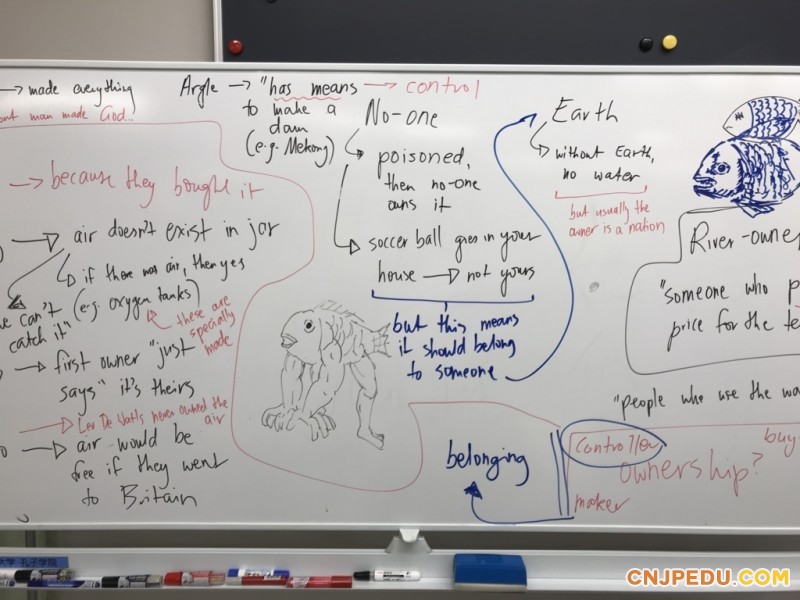 → made everything
but man made God...
→ because they bought it
→ air doesn't exist in jar
↳ if there was air, then yes
(e.g. oxygen tanks)
can't
catch it"
these are
specially
made
→ first owner "just
says" it's theirs
→ never owned the
air
→ air would be
free if they went
to Britain
Argle → "has means → control
to make a
dam
(e.g. Mekong)
No-one
poisoned,
then no-one
owns it
soccer ball goes in your
house → not yours
but this means
it should belong
to someone
Earth
without Earth,
no water
but usually the
owner is a nation
River-owner
"someone who p
price for the te
"people who use the wa
belonging
control/
buy
ownership?
maker
大学 孔子学院
CNJPEDU.COM